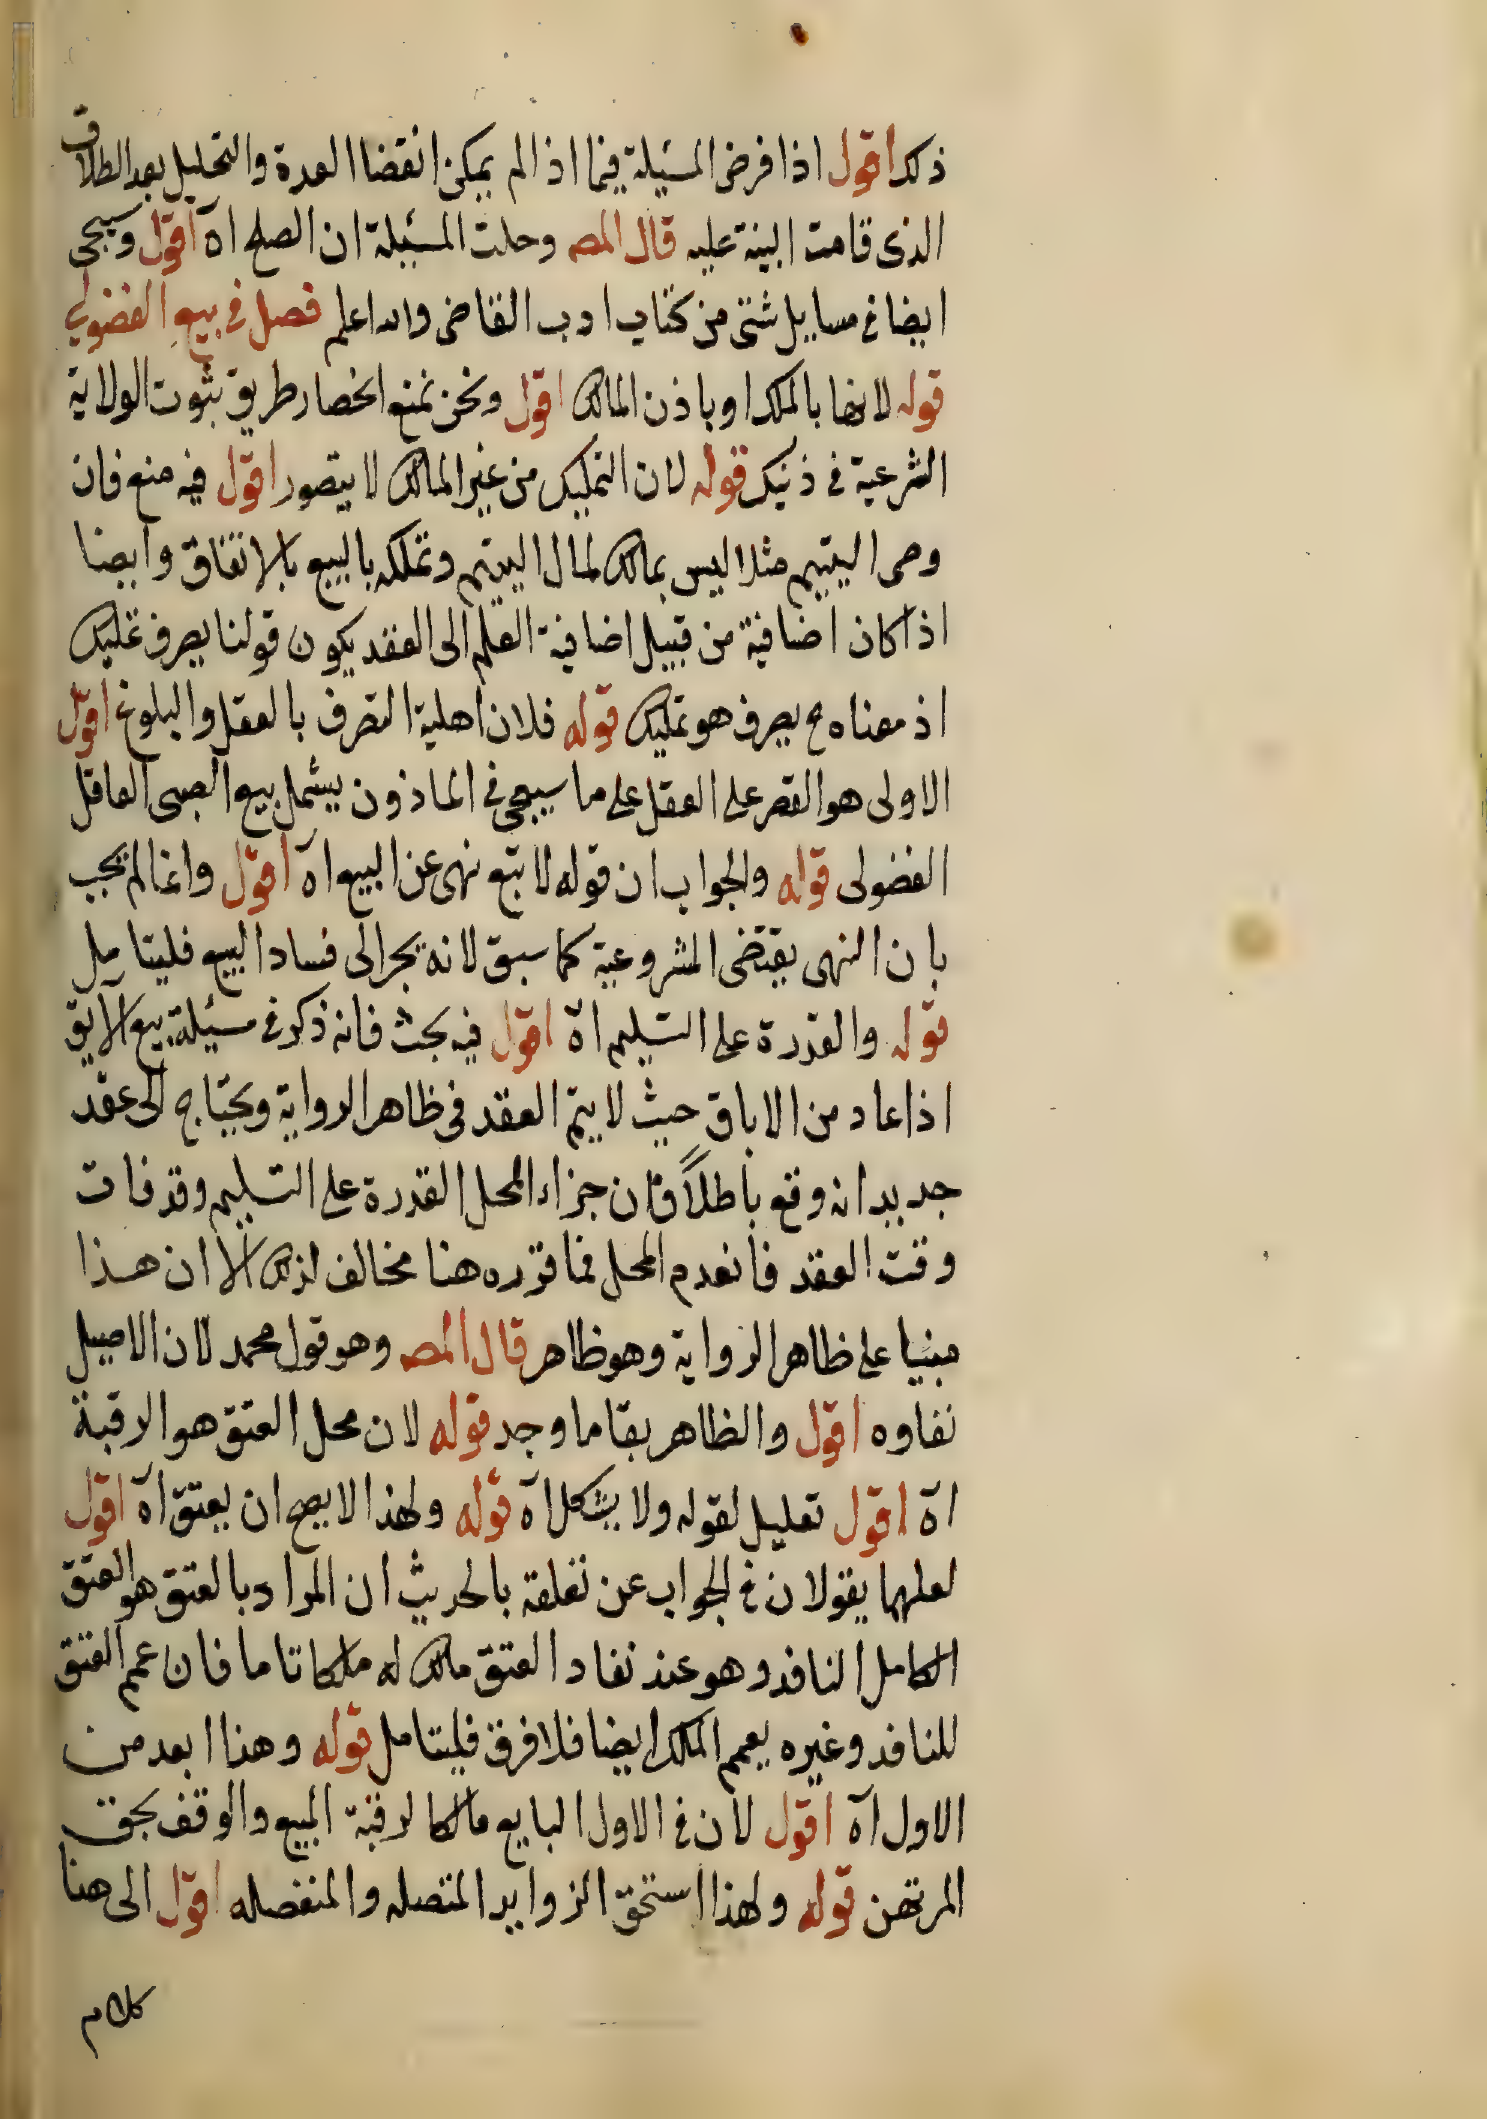 ذلك اقول اذا فرض المسئلة فيما اذا لم يمكن انقضا العدة والتحليل بعد الطلاق
الذى قامت البينة عليه قال المصـ وحلت المسئلة ان الصلح اه اقول وسيجى
ايضا فى مسايل شتى من كتاب ادب القاضى والله اعلم فصل فى بيع الفضولى
قوله لانها بالملك او باذن المالك اقول ونحن نمنع انحصار طريق ثبوت الولاية
الشرعية فى ذنيك قوله لان التمليك من غير المالك لا يتصور اقول فيه منع فان
وصى اليتيم مثلا ليس بمالك لمال اليتيم وتملكه بالبيع بالاتفاق وايضا
اذا كان اضافية من قبيل اضافية العلم الى العقد يكون قولنا يصرف تمليك
اذ معناه ح يصرف هو تمليك قوله فلان اهلية التصرف بالعقل والبلوغ اقول
الاولى هو القصر على العقل على ما سيجى فى الماذون يشمل بيع الصبى العاقل
الفضولى قوله والجواب ان قوله لا تبع نهى عن البيع اه اقول وانما لم يجب
بان النهى يقتضى المشروعية كما سبق لانه يجر الى فساد البيع فليتامل
قوله والقدرة على التسليم اه اقول فيه بحث فانه ذكر فى مسئلة بيع الآبق
اذا عاد من الاباق حيث لا يتم العقد فى ظاهر الرواية ويحتاج الى عقد
جديد انه وقع باطلاً فان جزاء المحل القدرة على التسليم وقد فات
وقت العقد فانعدم المحل فما قرره هنا مخالف لذلك الا ان هذا
مبنيا على ظاهر الرواية وهو ظاهر قال المصـ وهو قول محمد لان الاصيل
نفاوه اقول والظاهر بقا ما وجد قوله لان محل العتق هو الرقبة
اه اقول تعليل لقوله ولا يشكل اه قوله ولهذا لا يصح ان يعتق اه اقول
لعلهما يقولان فى الجواب عن تعلقه بالحديث ان المراد بالعتق هو العتق
الكامل النافد وهو عند نفاد العتق مالك له ملكا تاما فان عمم العتق
للنافد وغيره يعمم الملك ايضا فلا فرق فليتامل قوله وهذا ابعد من
الاول اه اقول لان فى الاول البايع مالكا لرقبة المبيع والوقف بحق
المرتهن قوله ولهذا استحق الزوايد المتصله والمنفصله اقول الى هنا
كلام